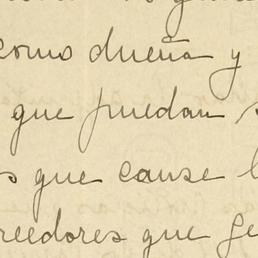 como dueña y
que puedan
s que cause l
reedores que ge